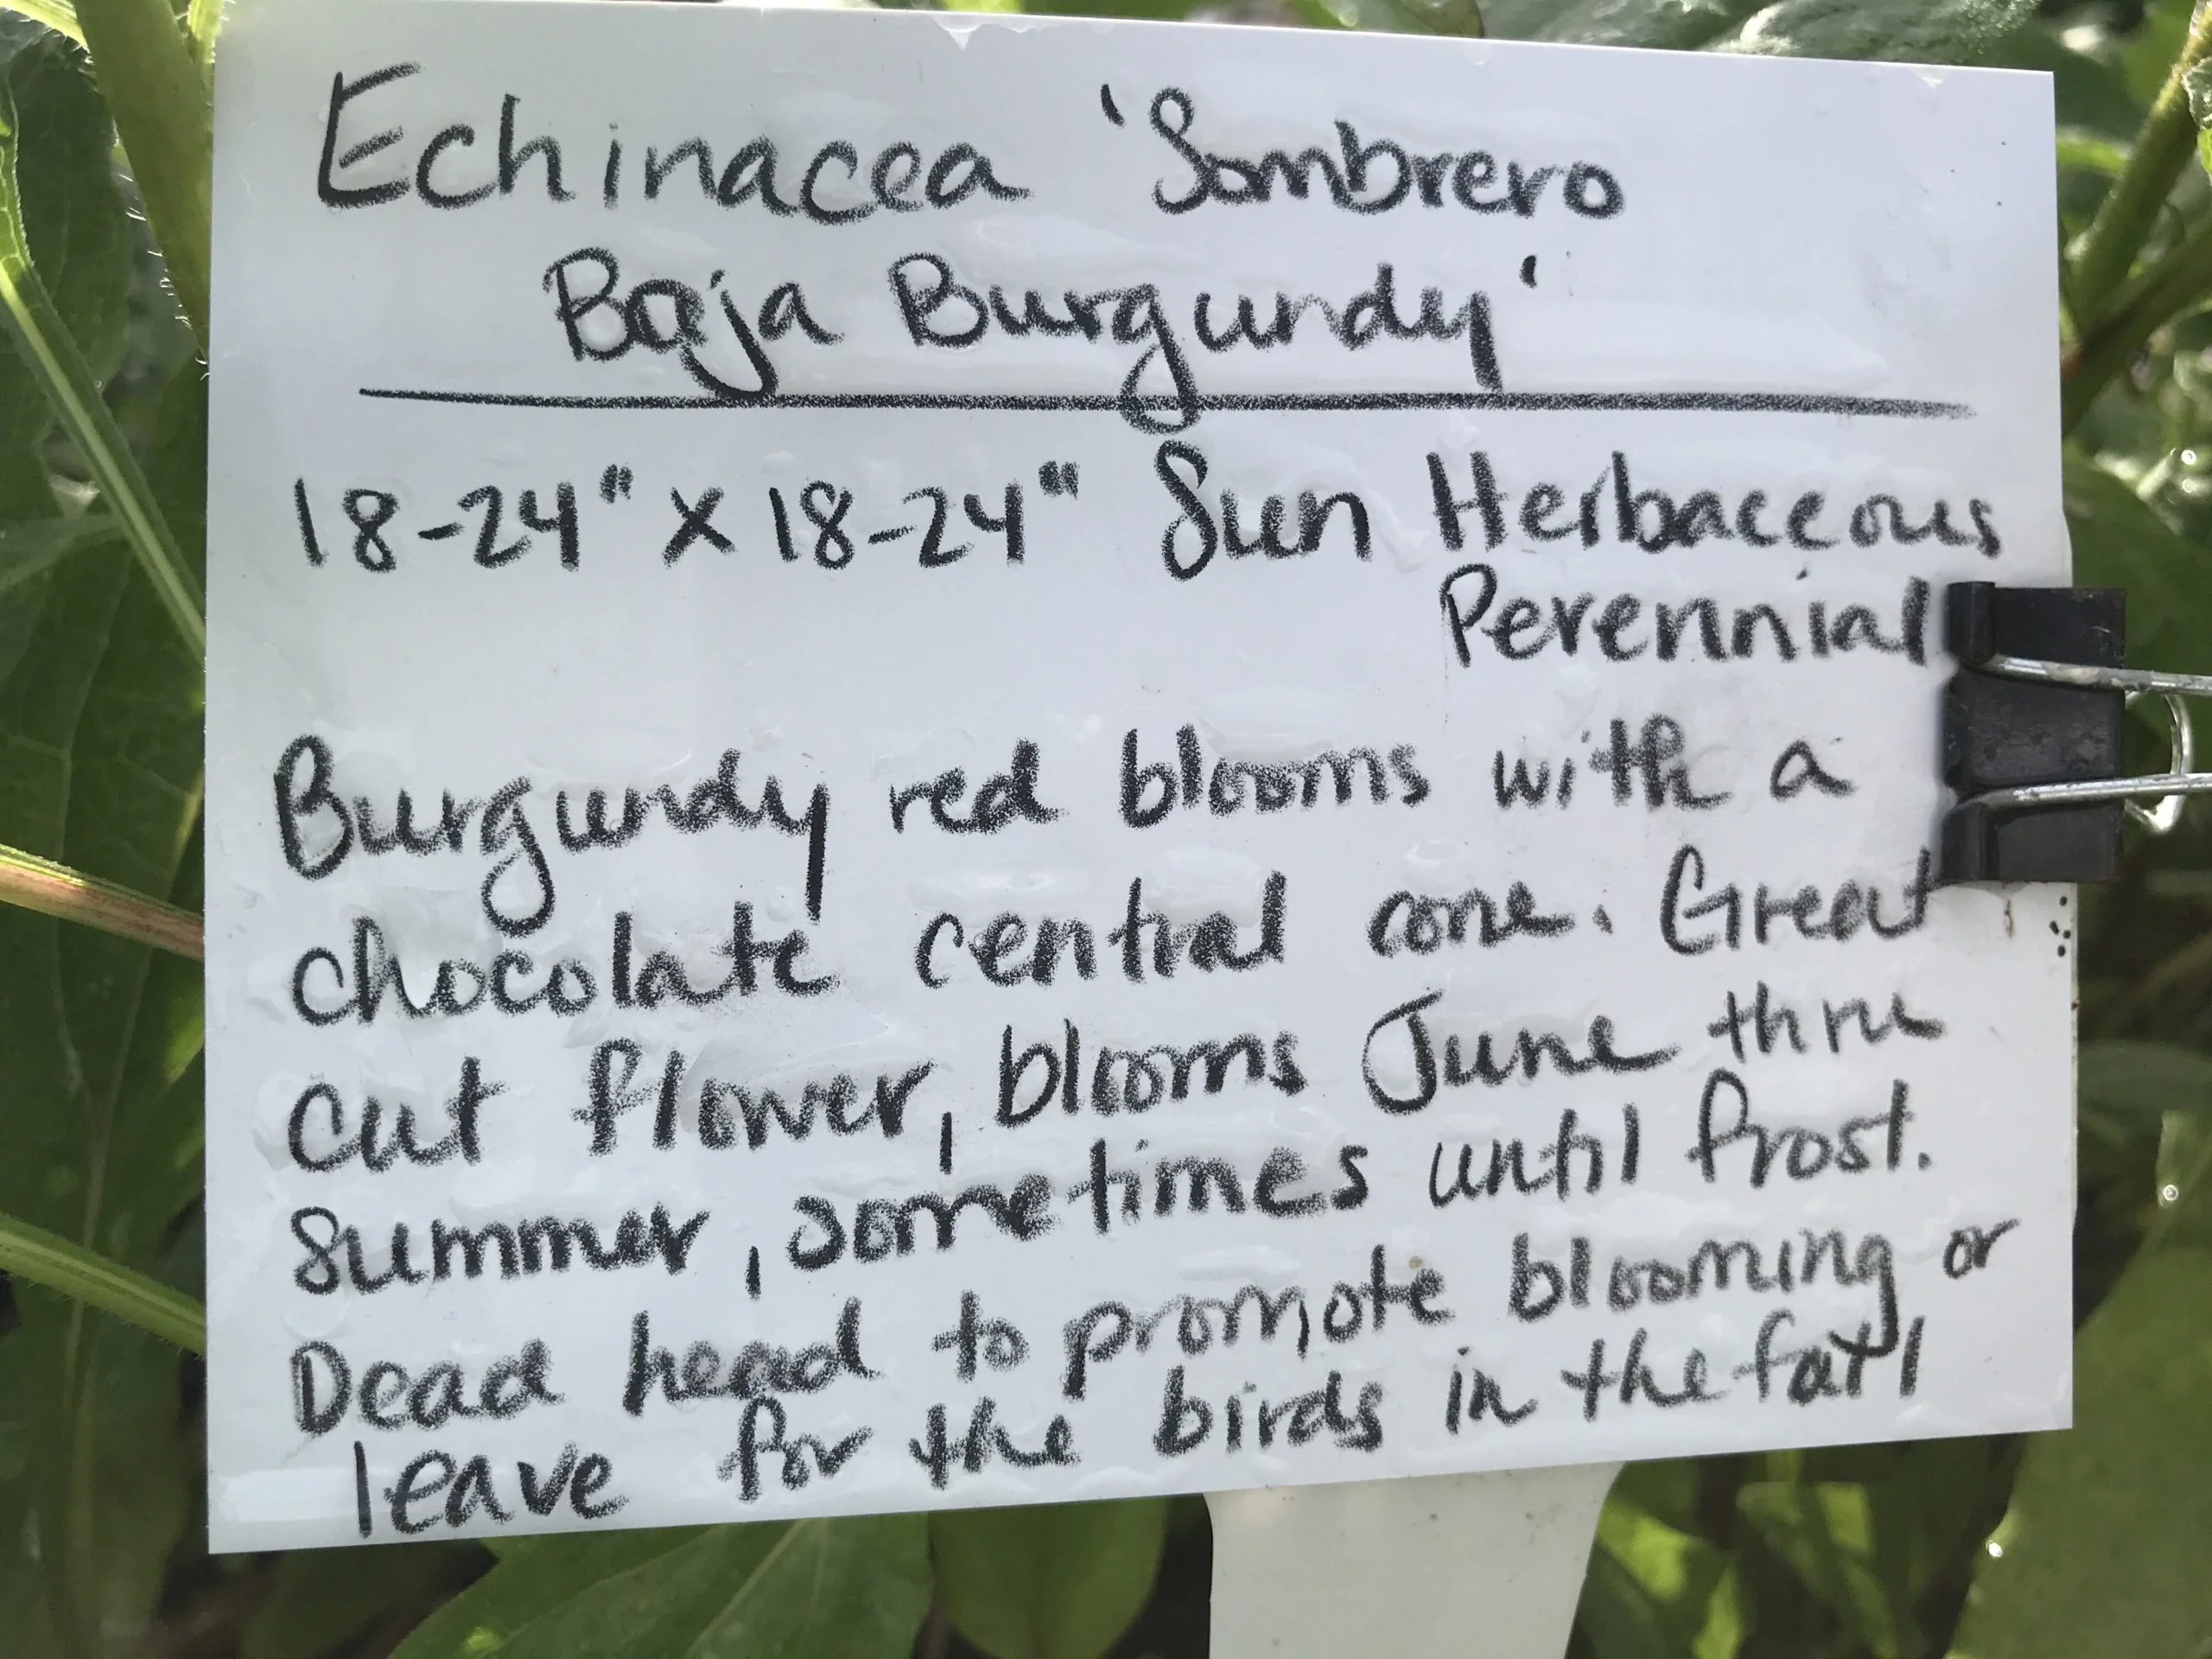 Echinacea 'Sombrero
Baja Burgundy'
18-24" x 18-24" Sun Herbaceous
Perennial
Burgundy red blooms with a
chocolate central cone. Great
cut flower, blooms June thru
summer, sometimes until frost.
Dead head to promote blooming or
leave for the birds in the fall